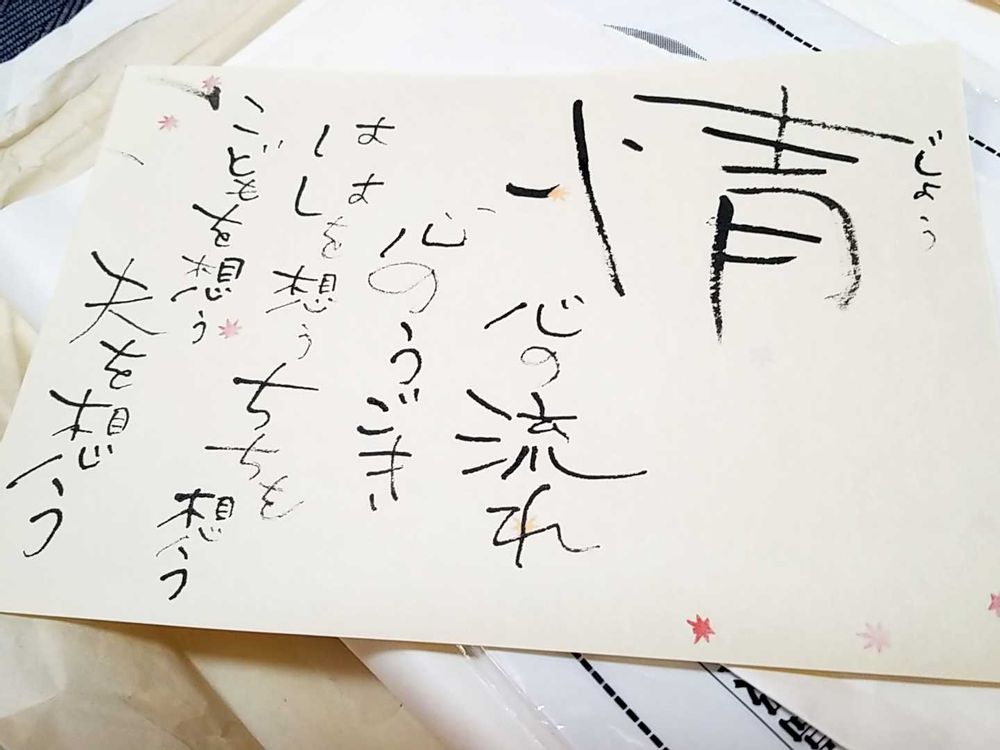 じょう
情
心の流れ
心のうごき
ははを想う
ちちを想う
こどもを想う
夫を想う